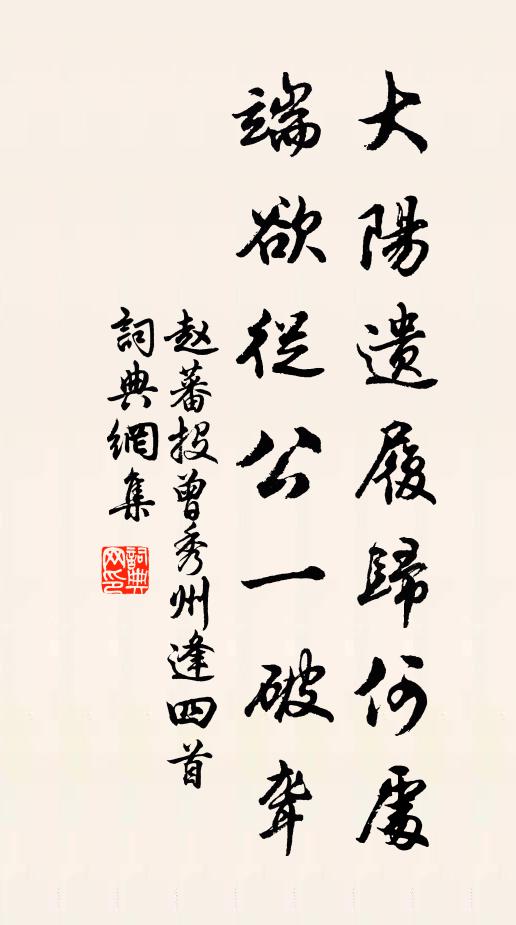 大陽遺履歸何處
端欲從公一破聋
赵蕃投曾秀州逢四首
詞典網集
詞典网印